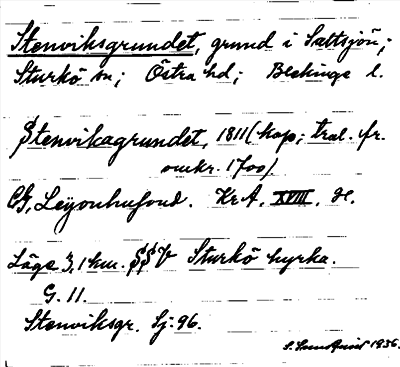 Stenviksgrundet, grund i Saltsjön;
Sturkö sn; Östra hd; Blekinge l.
Stenvikagrundet, 1811 (kop; tral. fr.
omkr. 1700).
CG, Leijonhufvud. KrA, XVIII, H.
Läge 3,1 km. SSV Sturkö kyrka.
G. 11.
Stenviksgr. Sj: 96.
1936.